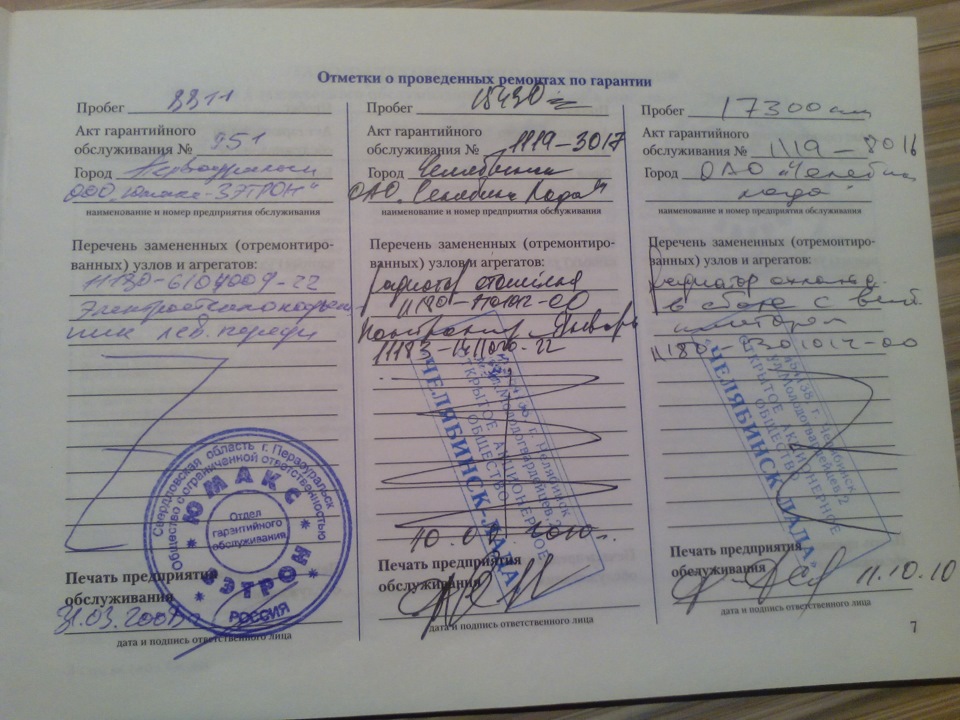 Отметки о проведенных ремонтах по гарантии
Пробег 8811
Акт гарантийного
обслуживания № 951
Город Первоуральск
ООО "Юмакс-ЗЭТРОН"
наименование и номер предприятия обслуживания
Перечень замененных (отремонтиро-
ванных) узлов и агрегатов:
11180-6104009-22
Электростеклоподъем-
ник лев. перед
Свердловская область г. Первоуральск
Общество с ограниченной ответственностью
ЮМАКС
Отдел
гарантийного
обслуживания
ЗЭТРОН
РОССИЯ
Печать предприятия
обслуживания
31.03.2009
дата и подпись ответственного лица
Пробег 15430
Акт гарантийного
обслуживания № 1119-3017
Город Челябинск
ОАО "Челябинск Лада"
наименование и номер предприятия обслуживания
Перечень замененных (отремонтиро-
ванных) узлов и агрегатов:
радиатор
Январь
11183-1411020-22
г. Челябинск
ул. Молодогвардейцев, 2
ОТКРЫТОЕ АКЦИОНЕРНОЕ
ОБЩЕСТВО
"ЧЕЛЯБИНСК-ЛАДА"
2010
Печать предприятия
обслуживания
дата и подпись ответственного лица
Пробег 17300 км
Акт гарантийного
обслуживания № 1119-8016
Город ОАО "Челябинск
лада"
наименование и номер предприятия обслуживания
Перечень замененных (отремонтиро-
ванных) узлов и агрегатов:
радиатор охлажд.
в сборе с вент.
11180-1301012-00
454138, г. Челябинск
ул. Молодогвардейцев, 2
ОТКРЫТОЕ АКЦИОНЕРНОЕ
ОБЩЕСТВО
"ЧЕЛЯБИНСК-ЛАДА"
Печать предприятия
обслуживания
11.10.10
дата и подпись ответственного лица
7